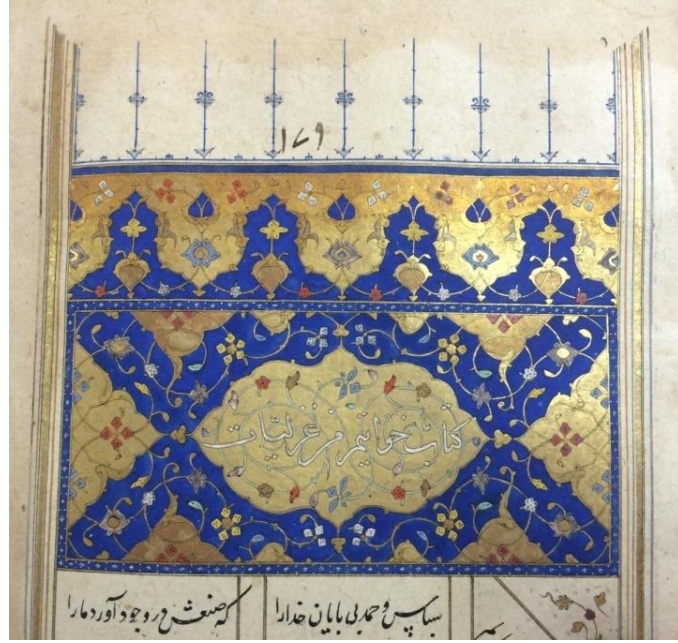 ۱۷۹
کتاب خواتیم من غزلیات
سپاس و حمد بی پایان خدا را
که صنعش در وجود آورد ما را